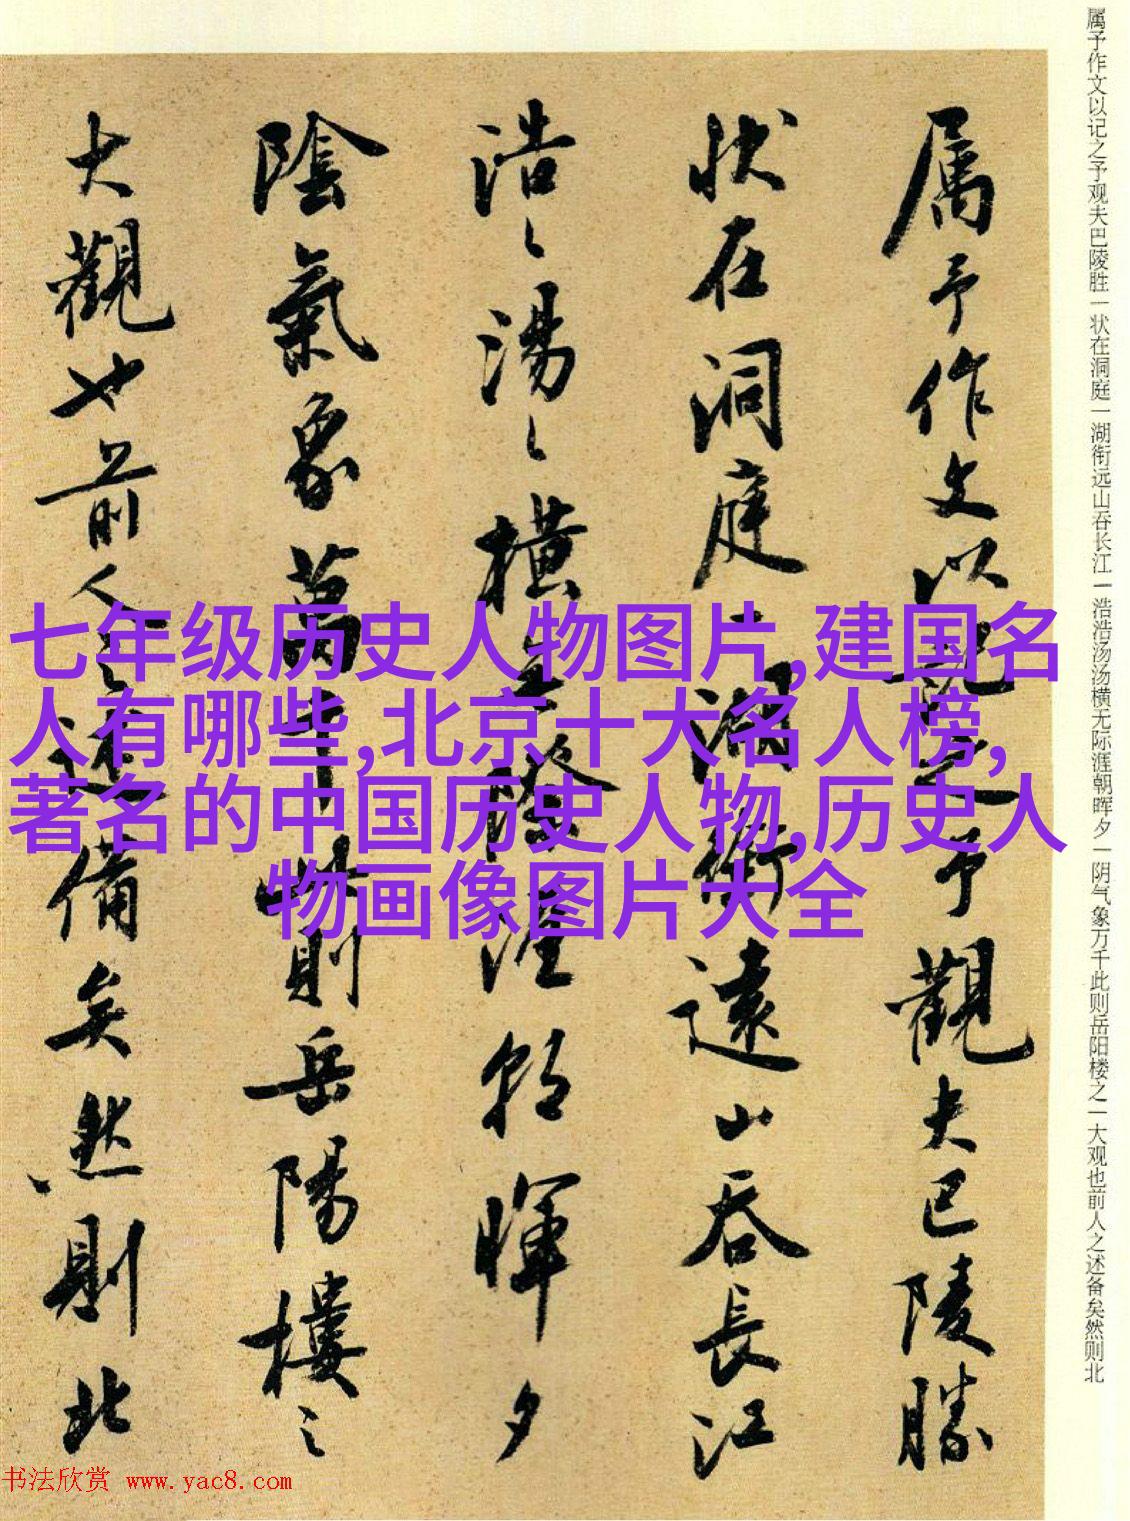 属予作文以记之予观夫巴陵胜一状在洞庭一湖衔远山吞长江一浩浩汤汤横无际涯朝晖夕一阴气象万千此则岳阳楼之一大观也前人之述备矣然则北
属予作文以記之予觀夫巴陵勝
状在洞庭一湖銜遠山吞長江
浩〻湯〻橫無際涯朝暉夕
陰氣象萬千此則岳陽樓之
大觀也前人之述備矣然則北
七年级历史人物图片,建国名
人有哪些,北京十大名人榜,
著名的中国历史人物,历史人
物画像图片大全
书法欣赏 www.yac8.com